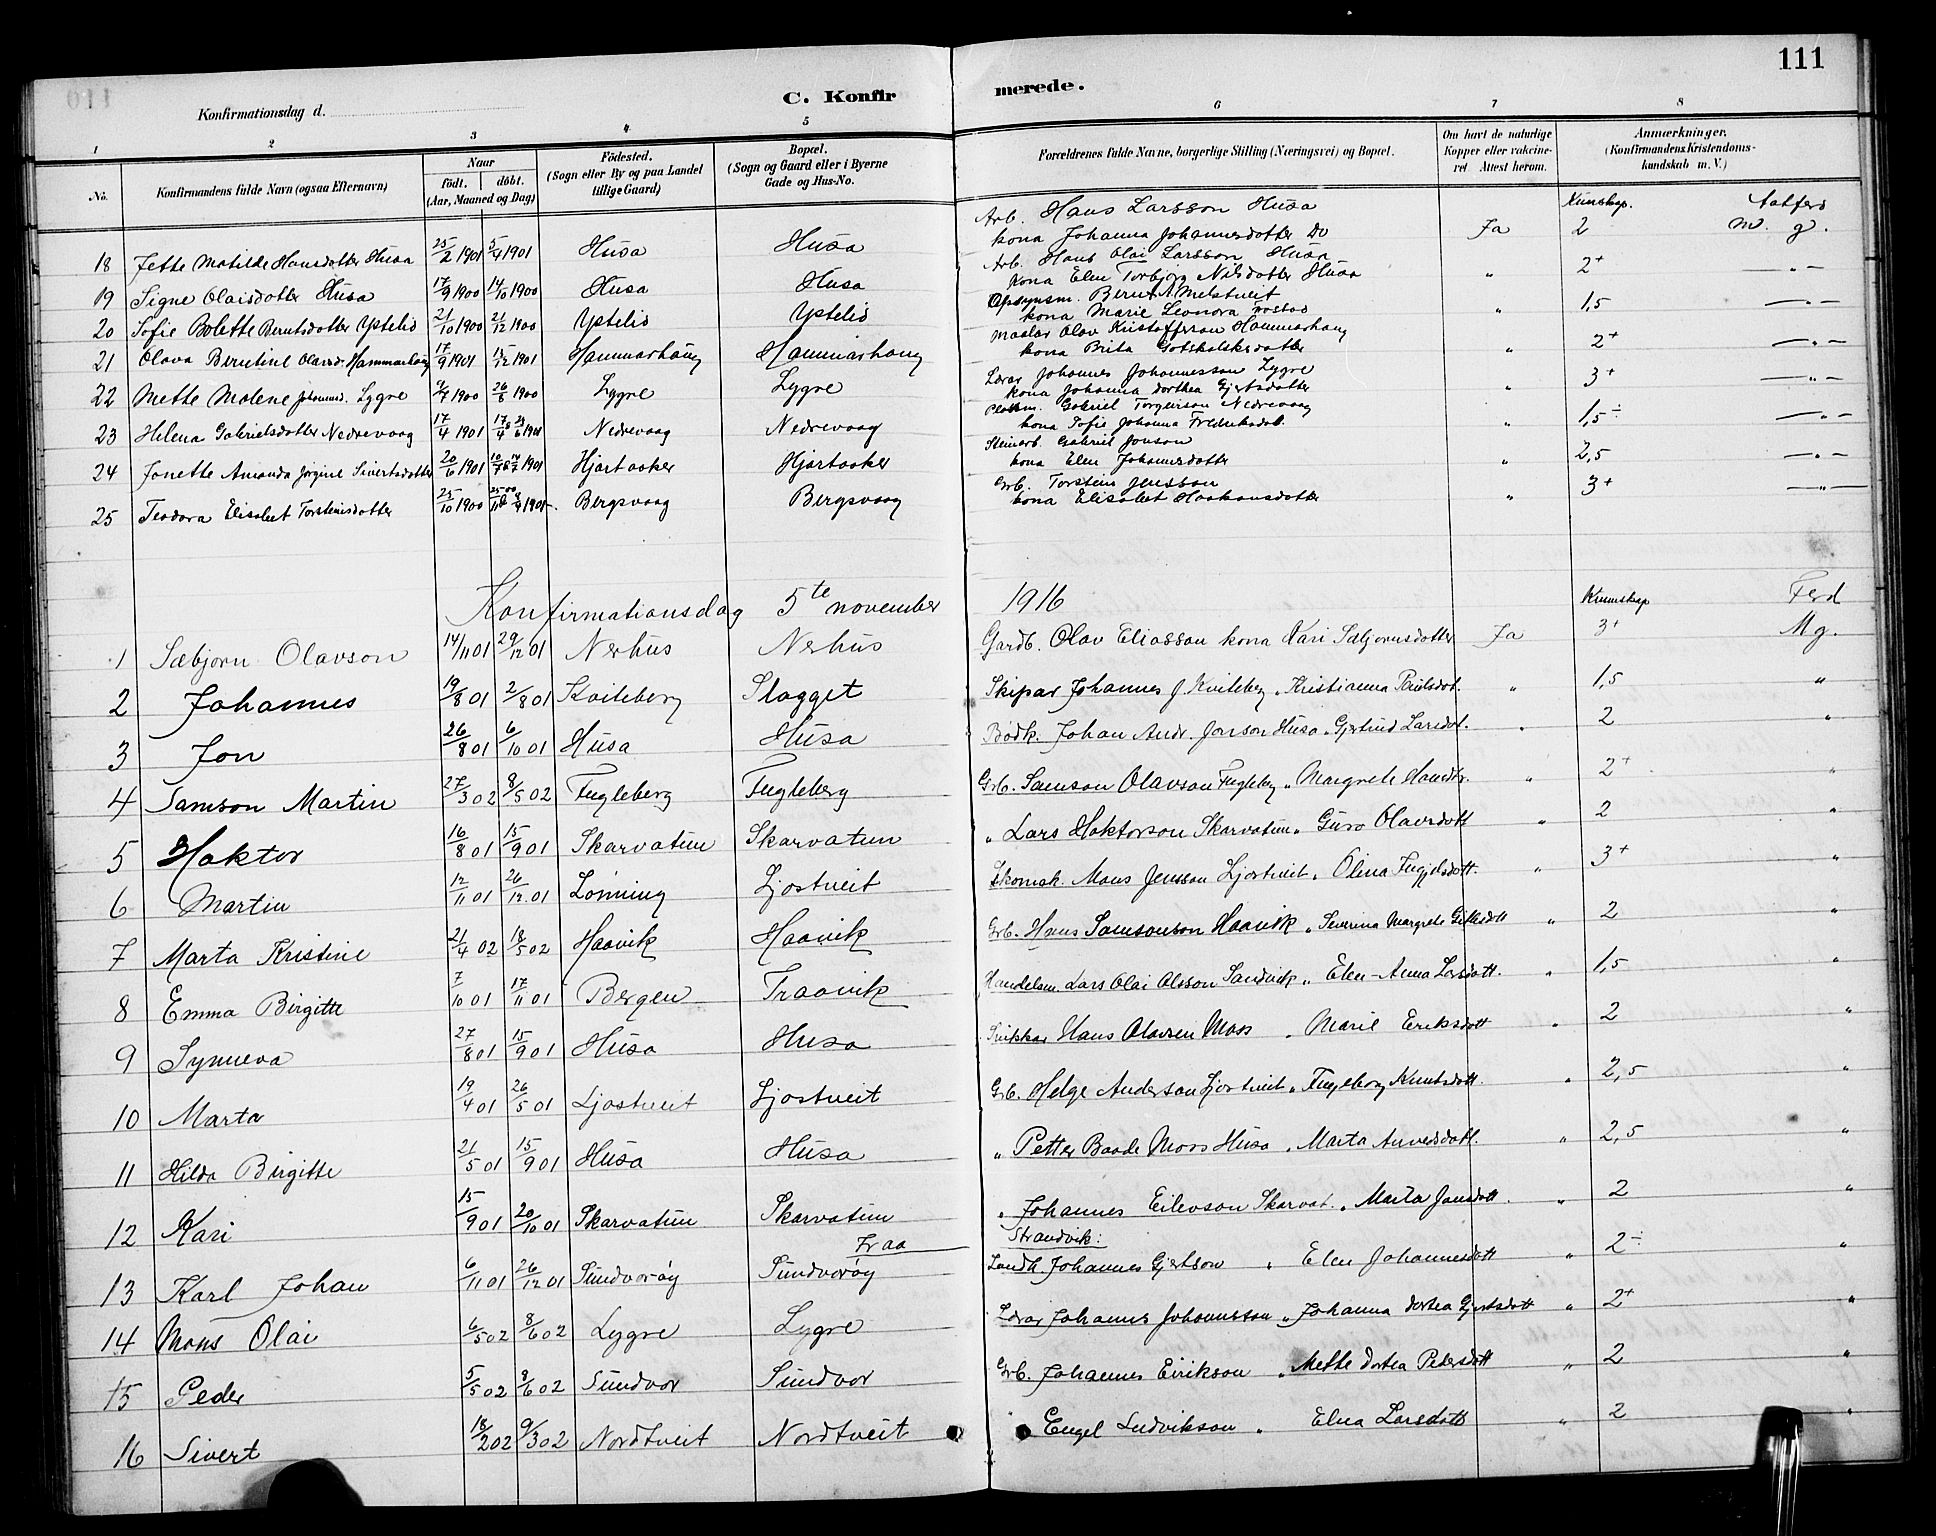 111
C. Konfirmerede.
Konfirmationsdag d.
1 2 3 4 5 6 7 8
No. Konfirmandens fulde Navn (ogsaa Efternavn) Naar födt. döbt. (Aar, Maaned og Dag) Födested. (Sogn eller By og paa Landet tillige Gaard) Bopæl. (Sogn og Gaard eller i Byerne Gade og Hus-No. Forældrenes fulde Navne, borgerlige Stilling (Næringsvei) og Bopæl. Om havt de naturlige Kopper eller vaccineret. Attest herom. Anmærkninger. (Konfirmandens Kristendomskundskab m. V.)
Kunskap. Aatferd
18 Jette Matilde Hansdotter Husa 25/2 1901 5/4 1901 Husa Husa Arb. Hans Larsson Husa Ja 2 m. g.
kona Johanna Johannesdotter Do
19 Signe Olaisdotter Husa 17/9 1900 14/10 1900 Husa Husa Arb. Hans Olai Larsson Husa " 2+ — " —
kona Elen Torbjörg Nilsdotter Husa
20 Sofie Bolette Berntsdotter Ystelid 21/10 1900 21/12 1900 Ystelid Ystelid Opsynsm. Bernt A. Melstveit " 1,5 — " —
kona Marie Leonora
21 Olava Berntine Olavsd. Hammarhaug 17/9 1901 15/12 1901 Hammarhaug Hammarhaug Maalar Olav Kristofferson Hammarhaug " 2+ — " —
kona Brita Gotskalksdotter
22 Mette Malene Johannesd. Lygre 9/7 1900 26/8 1900 Lygre Lygre Lærar Johannes Johannesson Lygre " 3+ — " —
kona Johanna Dorthea Gjertsdotter
23 Helena Gabrielsdotter Nedrevaag 17/4 1901 1901 Nedrevaag Nedrevaag Gabriel Torgeirson Nedrevaag " 1,5 ÷ — " —
kona Sofie Johanna Fredriksdot.
24 Jonette Amanda Jorgine Sivertsdotter 20/6 1901 1901 Hjartaaker Hjartaaker Steinarb. Gabriel Jonson " 2,5 — " —
kona Elen Johannesdotter
25 Teodora Elisabet Torsteinsdotter 25/10 1900 1901 Bergsvaag Bergsvaag Grb. Torstein Jensson " 3+ — " —
kona Elisabet Haakonsdotter
Konfirmationsdag 5te november 1916 Kunnskap Ferd
1 Sæbjorn Olavson 14/11 01 29/12 01 Nerhus Nerhus Gardb. Olav Eliasson kona Kari Sæbjornsdotter Ja 3+ Mg.
2 Johannes 19/8 01 2/8 01 Kviteberg Slagget Skipar Johannes J. Kviteberg " Kristianna Paulsdot. " 1,5 "
3 Jon 26/8 01 6/10 01 Husa Husa Bødk. Johan Andr. Jonson Husa " Gjertrud Larsdot. " 2 "
4 Samson Martin 27/3 02 8/5 02 Fugleberg Fugleberg Grb. Samson Olavson Fugleberg " Margrete Hansdtr. " 2+ "
5 Haktor 16/8 01 15/9 01 Skarvatun Skarvatun " Lars Haktorson Skarvatun " Guro Olavsdott " 2 "
6 Martin 12/11 01 26/12 01 Lønning Ljostveit Skomak. Mons Jensson Ljostveit " Olina " 3+ "
7 Marta Kristine 21/4 02 18/5 02 Haavik Haavik Grb. Hans Samsonson Haavik " Severina Margrete Gittlesdott " 2 "
8 Emma Birgitte 7/10 01 17/11 01 Bergen Traavik Handelsm. Lars Olai Olsson Sandvik " Elen-Anna Larsdott. " 1,5 "
9 Synneva 27/8 01 15/9 01 Husa Husa Snikkar Hans Olavsen Moss " Marie Eriksdott " 2 "
10 Marta 19/4 01 26/5 01 Ljostveit Ljostveit Grb. Helge Anderson Ljostveit " Ingeborg Knutsdott. " 2,5 "
11 Hilda Birgitte 21/5 01 15/9 01 Husa Husa " Petter Baade Moss Husa " Marta Anvedsdott. " 2,5 "
12 Kari 15/9 01 20/10 01 Skarvatun Skarvatun " Johannes Eilevson Skarvat. " Marta Jansdott. " 2 "
Fraa Strandvik:
13 Karl Johan 6/11 01 26/12 01 Sundvorøy Sundvorøy Landh. Johannes Gjertson " Elen Johannesdott " 2 ÷ "
14 Mons Olai 6/5 02 8/6 02 Lygre Lygre Lærar Johannes Johannesson " Johanna Dortea Gjertsdott " 2+ "
15 Peder 5/5 02 8/6 02 Sundvor Sundvor Grb. Johannes Eirikson " Mette Dortea Pedersdott " 2 "
16 Sivert 18/2 02 9/3 02 Nordtveit Nordtveit " Engel Ludvikson " Elna Larsdott " 2 "